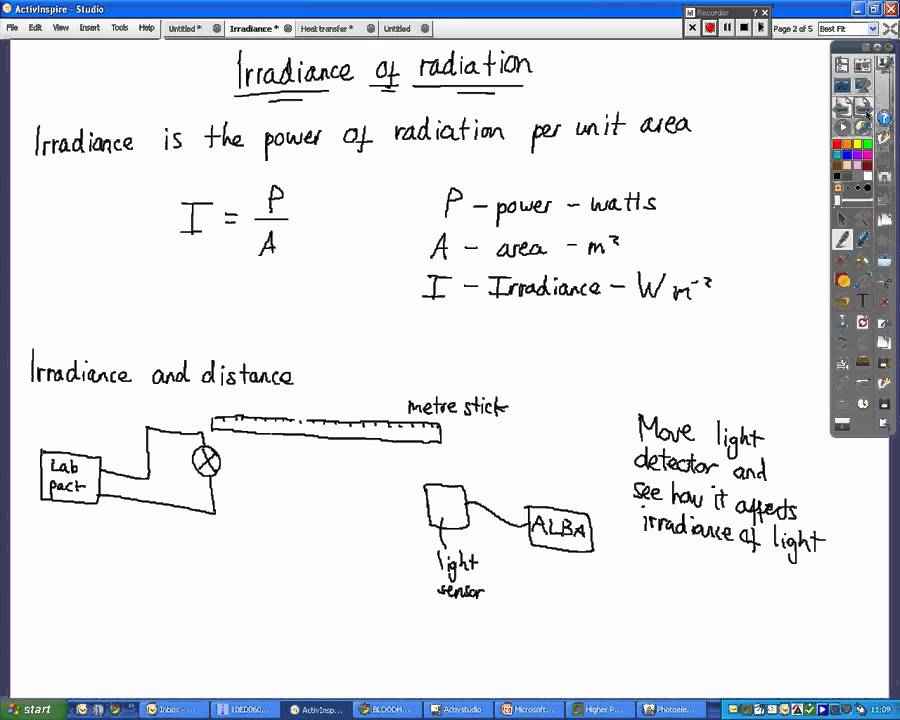 ActivInspire - Studio
Recorder
File Edit View Insert Tools Help
Untitled * Irradiance * Heat transfer * Untitled
Page 2 of 5 Best Fit
Irradiance of radiation
Irradiance is the power of radiation per unit area
I = P / A
P - power - watts
A - area - m²
I - Irradiance - W m⁻²
Irradiance and distance
metre stick
Lab
pact
light
sensor
ALBA
Move light
detector and
see how it affects
irradiance of light
start
Inbox - ...
1DED060...
ActivInsp...
BLOODH...
Activstudio
Microsoft...
Higher P...
Photoele...
11:09